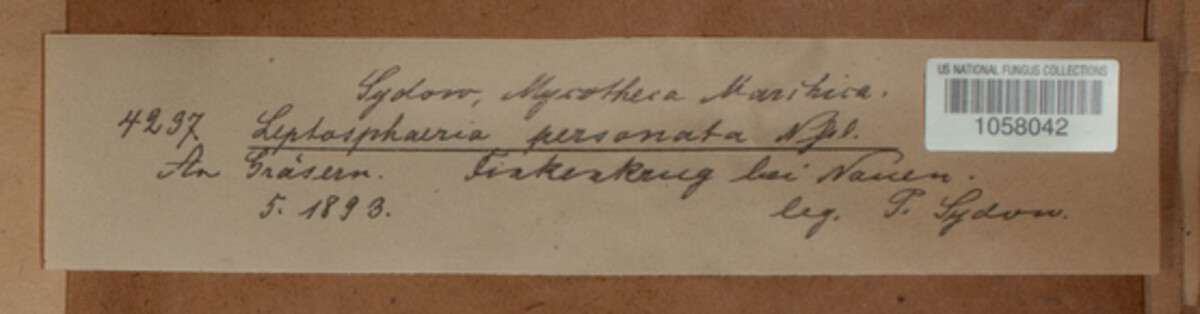 Sydow, Mycotheca Marchica.
4237 Leptosphaeria personata Nssl.
An Gräsern. Finkenkrug bei Nauen.
5. 1893. leg. P. Sydow.
US NATIONAL FUNGUS COLLECTIONS
1058042